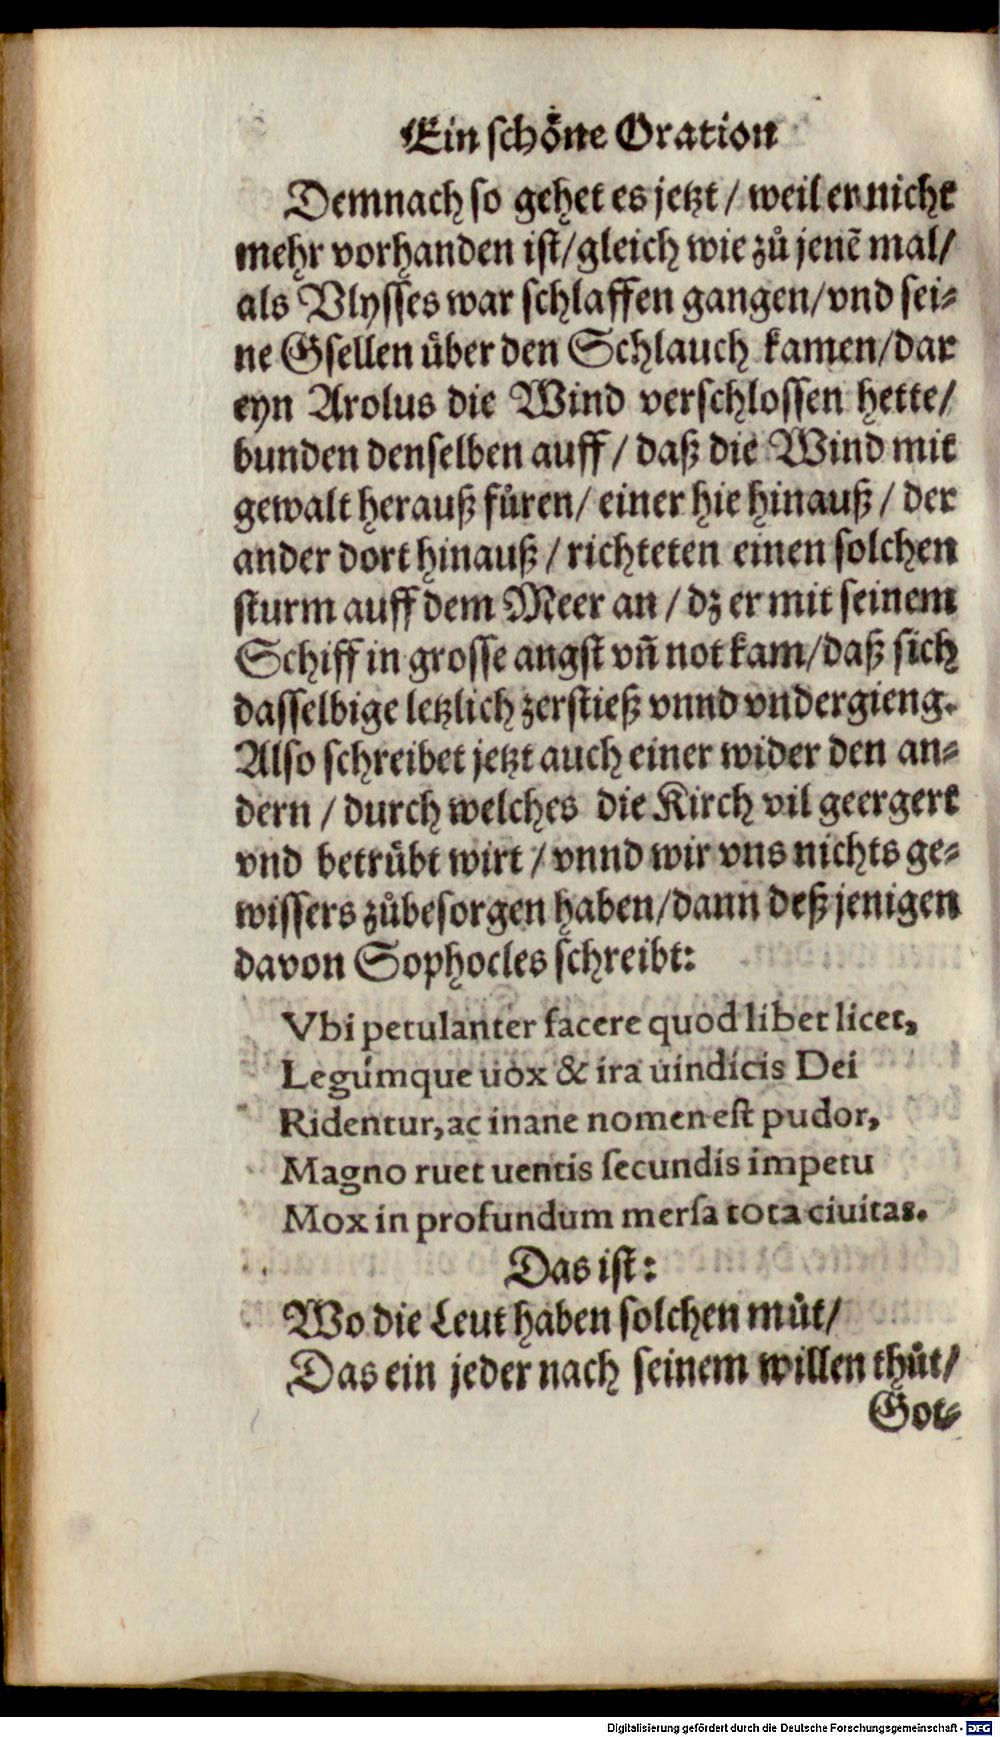 Ein schoͤne Oration
Demnach so gehet es jetzt / weil er nicht
mehr vorhanden ist / gleich wie zuͦ jenē mal /
als Vlysses war schlaffen gangen / vnd sei⸗
ne Gsellen uͤber den Schlauch kamen / dar
eyn Arolus die Wind verschlossen hette /
bunden denselben auff / daß die Wind mit
gewalt herauß fuͤren / einer hie hinauß / der
ander dort hinauß / richteten einen solchen
sturm auff dem Meer an / dz er mit seinem
Schiff in grosse angst vn̄ not kam / daß sich
dasselbige letzlich zerstieß vnnd vndergieng.
Also schreibet jetzt auch einer wider den an⸗
dern / durch welches die Kirch vil geergert
vnd betruͤbt wirt / vnnd wir vns nichts ge⸗
wissers zuͦbesorgen haben / dann deß jenigen
davon Sophocles schreibt:
Vbi petulanter facere quod libet licet,
Legúmque uox & ira uindicis Dei
Ridentur, ac inane nomen est pudor,
Magno ruet uentis secundis impetu
Mox in profundum mersa tota ciuitas.
Das ist:
Wo die Leut haben solchen muͦt /
Das ein jeder nach seinem willen thuͦt /
Got⸗
Digitalisierung gefördert durch die Deutsche Forschungsgemeinschaft - DFG